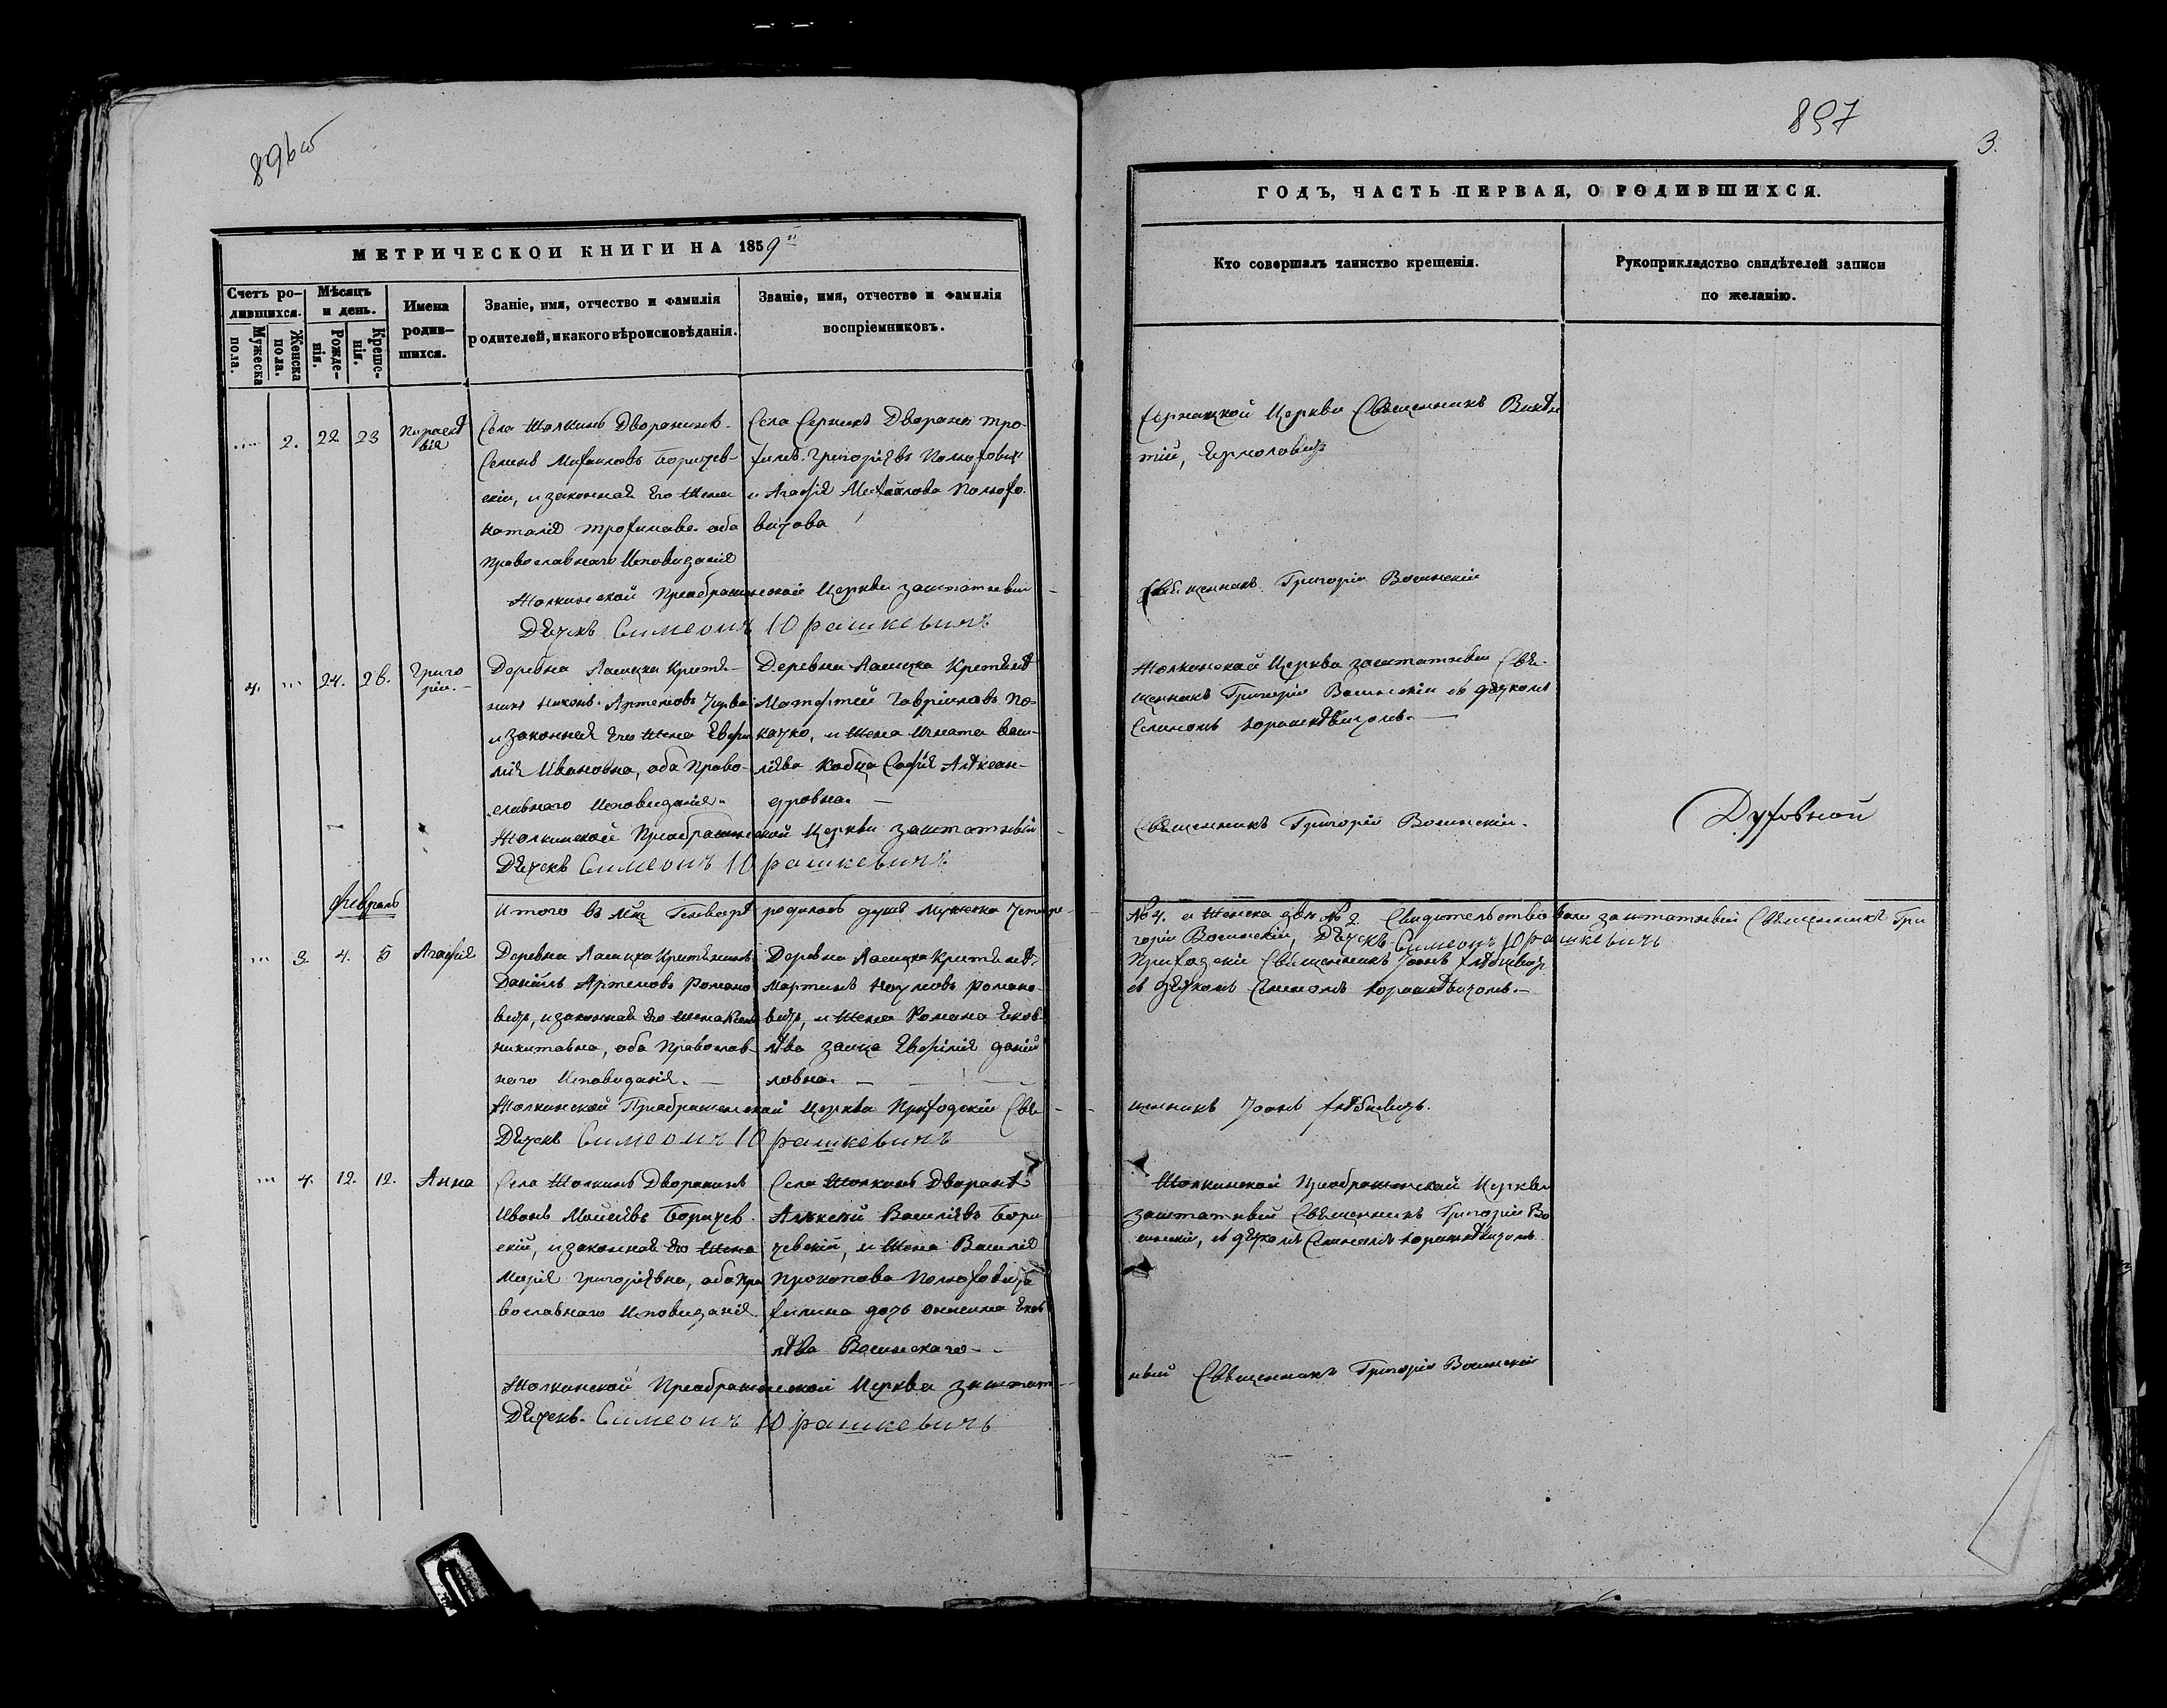 896об
МЕТРИЧЕСКОЙ КНИГИ НА 1859й
Счетъ ро-
дившихся.
Мужеска
пола.
Женска
пола.
Мѣсяцъ
и день.
Рожде-
нія.
Креще-
нія.
Имена
родив-
шихся.
Званіе, имя, отчество и фамилія
родителей, и какого вѣроисповѣданія.
Званіе, имя, отчество и фамилія
воспріемниковъ.
2. 22 23
Параске
вія
Села Жолкинь Дворянинъ
Семенъ Михаиловъ Боричев-
скій, и законная его Жена
Наталія Трофимова оба
Православнаго Исповиданія
Села Серникъ Дворяне Тро-
фимъ Григоріевъ Полюхович
и Агафія Михайлова Полюхо-
вичова
Жолкинской Преображенской Церкви заштатный
Дѣчекъ Симеонъ Юрашкевичъ
4. 24. 26.
Григо
рій.
Деревни Ласицка Кристя-
нинъ Никонъ Артемовъ
и законная Его Жена Евфи
мія Ивановна, оба Право-
славнаго Исповиданія.
Деревни Ласицка Кристяне
Матфтей Гавріиловъ По-
лачко, и Жена Игната Васи-
ліева Кобца Софія Алексан-
дровна.
Жолкинской Преображенской Церкви заштатный
Дѣчекъ Симеонъ Юрашкевичъ
Февраль
Итого въ Мцѣ Генварѣ родилось душъ Мужеска Четыре
3. 4. 5
Агафія
Деревни Ласицка Кристянинъ
Данійлъ Артемовъ Романо
вичъ, и законная его Жена
Никитовна, оба Православ-
наго Исповиданія.
Деревни Ласицка Кристяне
Мартинъ Наумовъ Романо-
вичъ, и Жена Романа Яков-
лева Заица Евфимія Даній
ловна.
Жолкинской Преображенской Церкви Приходскій Свя-
Дѣчекъ Симеонъ Юрашкевичъ
4. 12. 12.
Анна
Села Жолкинь Дворянинъ
Иванъ Моисеевъ Боричев
скій, и законная его Жена
Марія Григоріевна, оба Пра
вославнаго Исповиданія
Села Жолкинь Дворяне
Алексѣй Василіевъ Бори
чевскій, и Жена Василія
Прокопова Полюховича
Филина дочь Онисима Яков
лева Восинскаго
Жолкинской Преображенской Церкви заштат-
Дѣчекъ Симеонъ Юрашкевичъ
897
3.
ГОДЪ, ЧАСТЬ ПЕРВАЯ, О РОДИВШИХСЯ.
Кто совершалъ таинство крещенія.
Рукоприкладство свидѣтелей записи
по желанію.
Серницкой Церкви Священникъ Викен
тій, Ермоловичъ
Священникъ Григорій Восинскій
Жолкинской Церкви заштатный Свя-
щенникъ Григорій Восинскій съ дѣчкомъ
Семиномъ Юрашкевичомъ.
Священникъ Григорій Восинскій.
Духовной
№ 4. и Женска двѣ № 2 Свидительствовали заштатный Священникъ Гри
горій Восинскій, Дѣчекъ Симеонъ Юрашкевичъ
Приходскій Священникъ Іоанъ
съ дѣчкомъ Семеномъ Юрашкевичомъ.
щенникъ Іоанъ
Жолкинской Преображенской Церкви
заштатный Священникъ Григорій Во
синскій, съ дѣчкомъ Семиномъ Юрашкевичомъ
ный Священникъ Григорій Восинскій